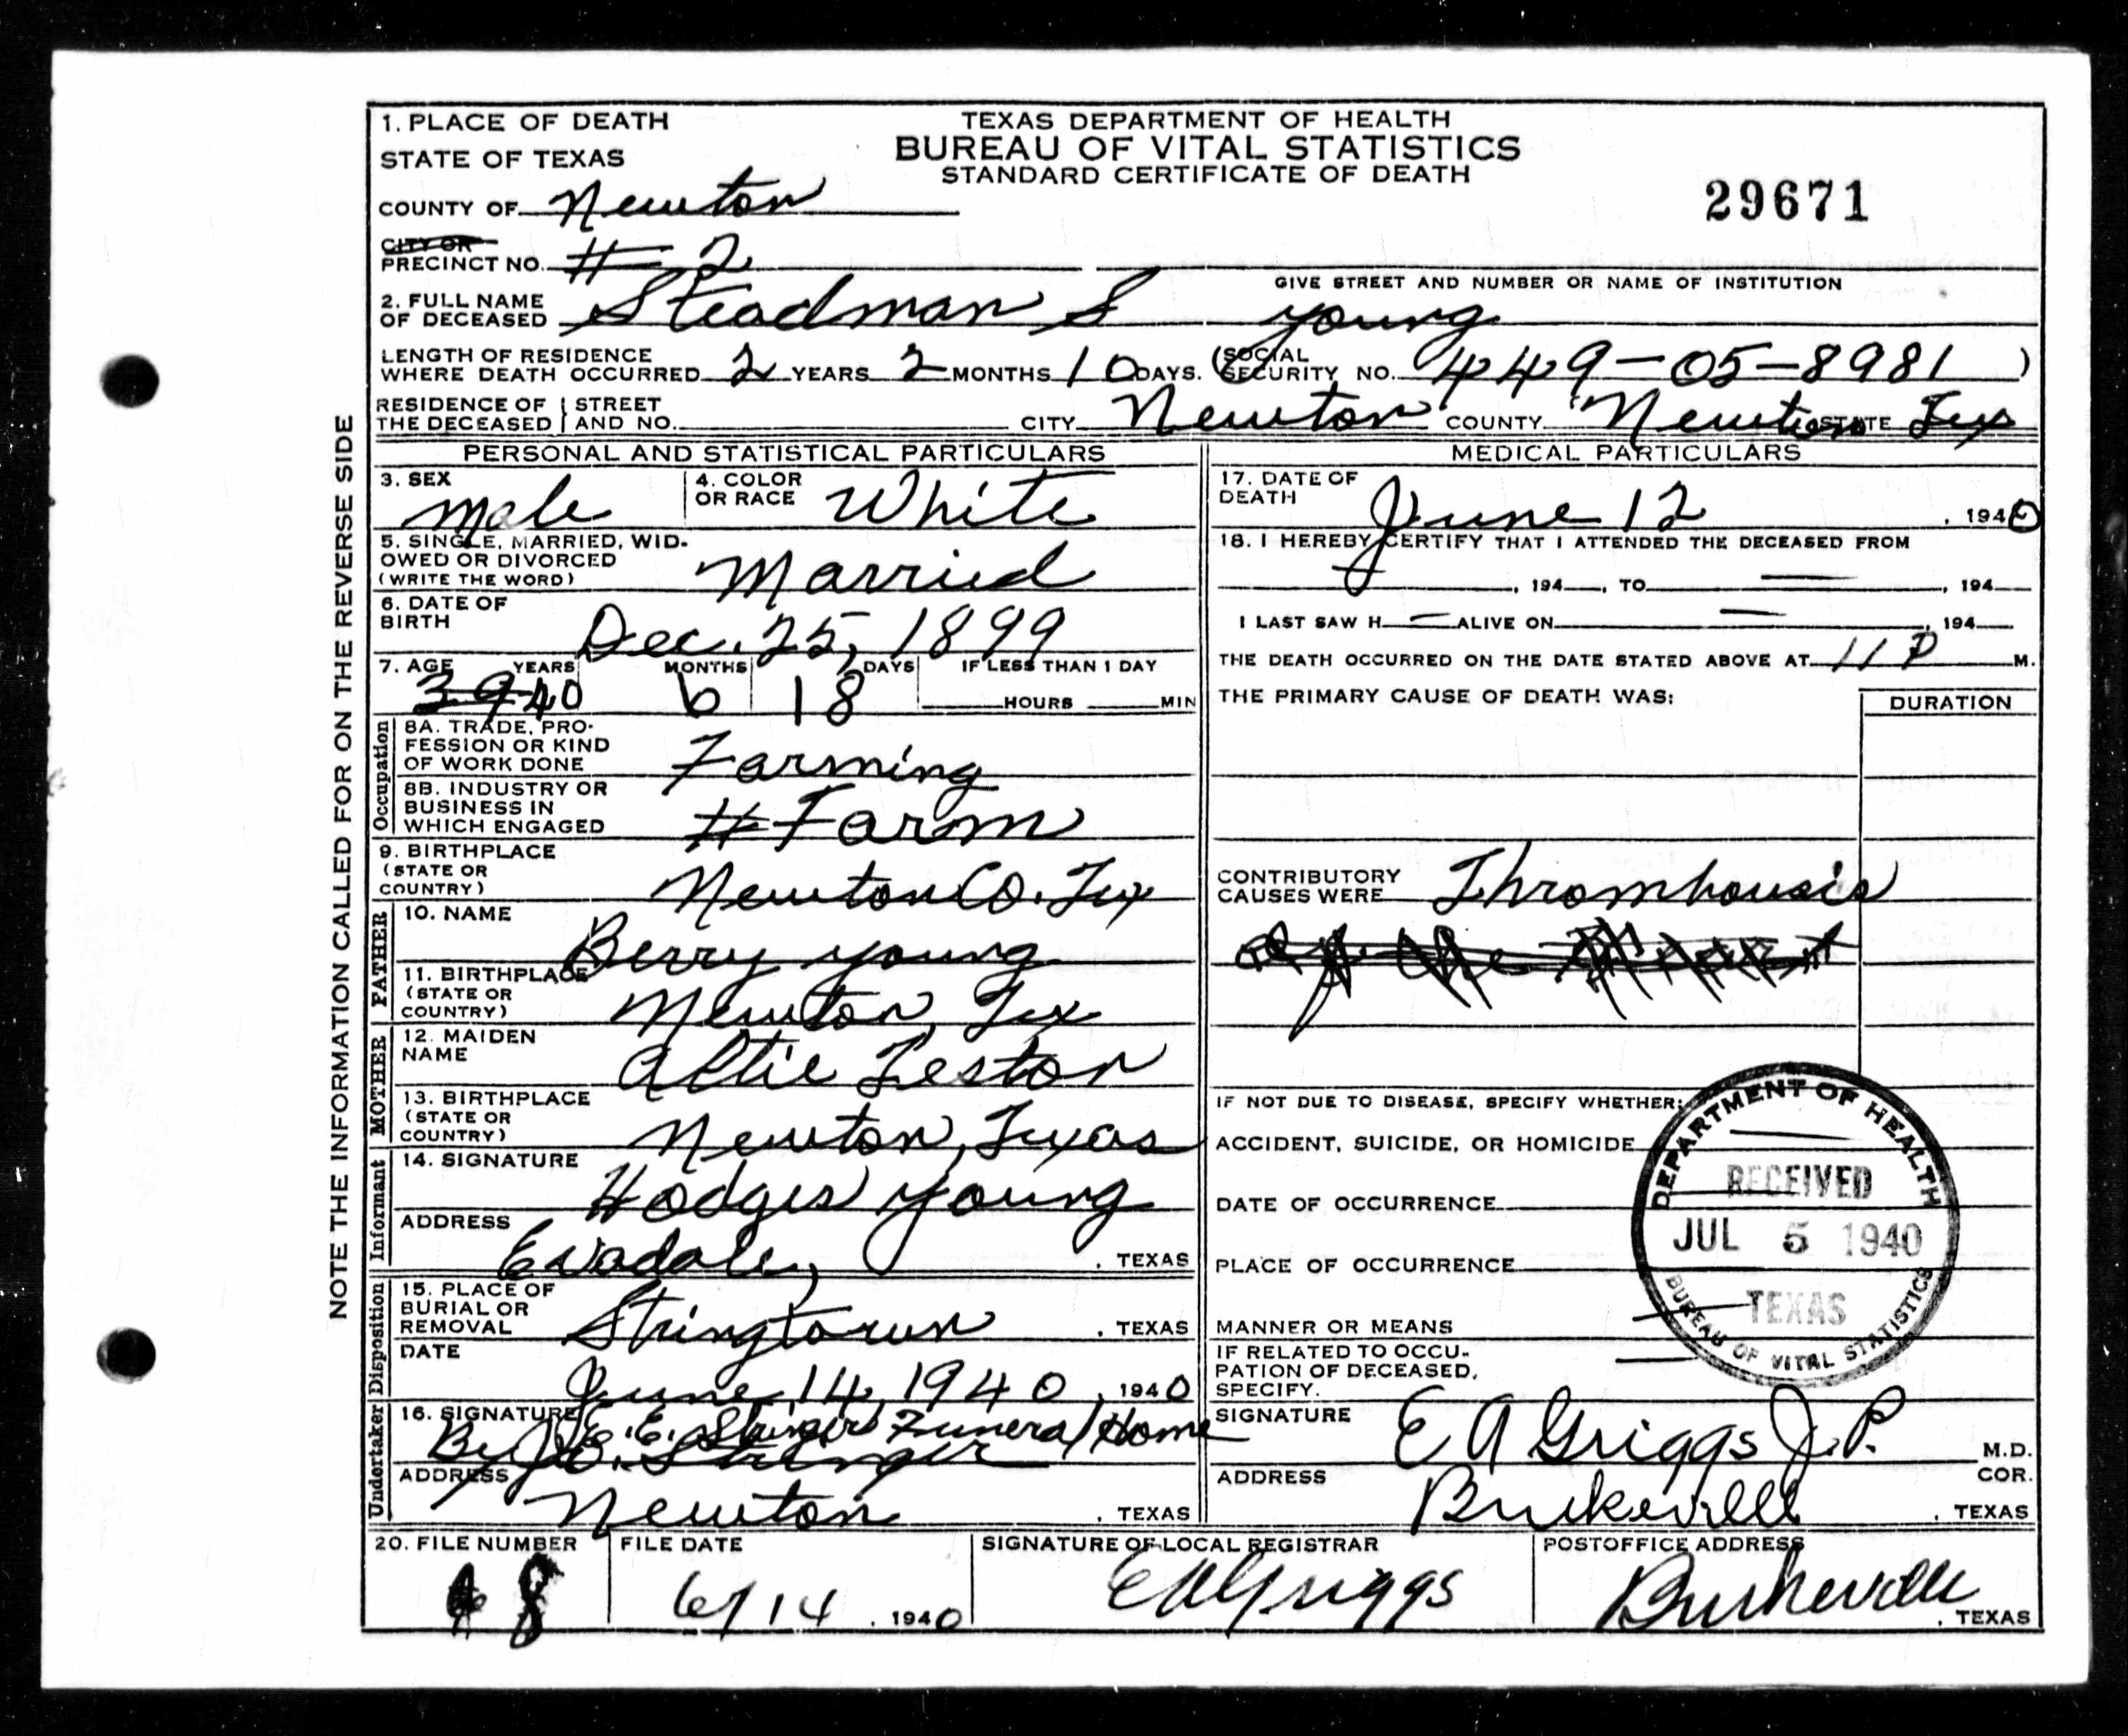 1. PLACE OF DEATH
STATE OF TEXAS
TEXAS DEPARTMENT OF HEALTH
BUREAU OF VITAL STATISTICS
STANDARD CERTIFICATE OF DEATH
29671
COUNTY OF Newton
CITY OR
PRECINCT NO. # 2
GIVE STREET AND NUMBER OR NAME OF INSTITUTION
2. FULL NAME
OF DECEASED Steadman S young
LENGTH OF RESIDENCE
WHERE DEATH OCCURRED 2 YEARS 2 MONTHS 10 DAYS. (SOCIAL
SECURITY NO. 449-05-8981)
RESIDENCE OF THE DECEASED STREET AND NO. CITY Newton COUNTY Newton STATE Tex
NOTE THE INFORMATION CALLED FOR ON THE REVERSE SIDE
PERSONAL AND STATISTICAL PARTICULARS
3. SEX
Male
4. COLOR
OR RACE White
5. SINGLE, MARRIED, WID-
OWED OR DIVORCED
(WRITE THE WORD) Married
6. DATE OF
BIRTH Dec. 25, 1899
7. AGE YEARS MONTHS DAYS IF LESS THAN 1 DAY
39 40 6 18 HOURS MIN
Occupation
8A. TRADE, PRO-
FESSION OR KIND
OF WORK DONE Farming
8B. INDUSTRY OR
BUSINESS IN
WHICH ENGAGED # Farm
9. BIRTHPLACE
(STATE OR
COUNTRY) Newton Co. Tex
FATHER
10. NAME
Berry young
11. BIRTHPLACE
(STATE OR
COUNTRY) Newton, Tex
MOTHER
12. MAIDEN
NAME Altie Leston
13. BIRTHPLACE
(STATE OR
COUNTRY) Newton, Texas
Informant
14. SIGNATURE
Hodges young
ADDRESS
Evadale, , TEXAS
Disposition
15. PLACE OF
BURIAL OR
REMOVAL Stringtown , TEXAS
DATE
June 14, 1940, 1940
Undertaker
16. SIGNATURE E. E. Stringer Funeral Home
By Stringer
ADDRESS
Newton , TEXAS
MEDICAL PARTICULARS
17. DATE OF
DEATH June 12, 1940
18. I HEREBY CERTIFY THAT I ATTENDED THE DECEASED FROM
, 194 , TO — , 194
I LAST SAW H — ALIVE ON — , 194
THE DEATH OCCURRED ON THE DATE STATED ABOVE AT 11 P M.
THE PRIMARY CAUSE OF DEATH WAS:
DURATION
CONTRIBUTORY
CAUSES WERE Thrombousis
of the
IF NOT DUE TO DISEASE, SPECIFY WHETHER:
ACCIDENT, SUICIDE, OR HOMICIDE
DATE OF OCCURRENCE
PLACE OF OCCURRENCE
MANNER OR MEANS —
IF RELATED TO OCCU-
PATION OF DECEASED,
SPECIFY. —
DEPARTMENT OF HEALTH
RECEIVED
JUL 5 1940
TEXAS
BUREAU OF VITAL STATISTICS
SIGNATURE E A Griggs J.P. M.D.
COR.
ADDRESS
Burkevill , TEXAS
20. FILE NUMBER
8
FILE DATE
6/14, 1940
SIGNATURE OF LOCAL REGISTRAR
E A Griggs
POSTOFFICE ADDRESS
Burkeville
, TEXAS